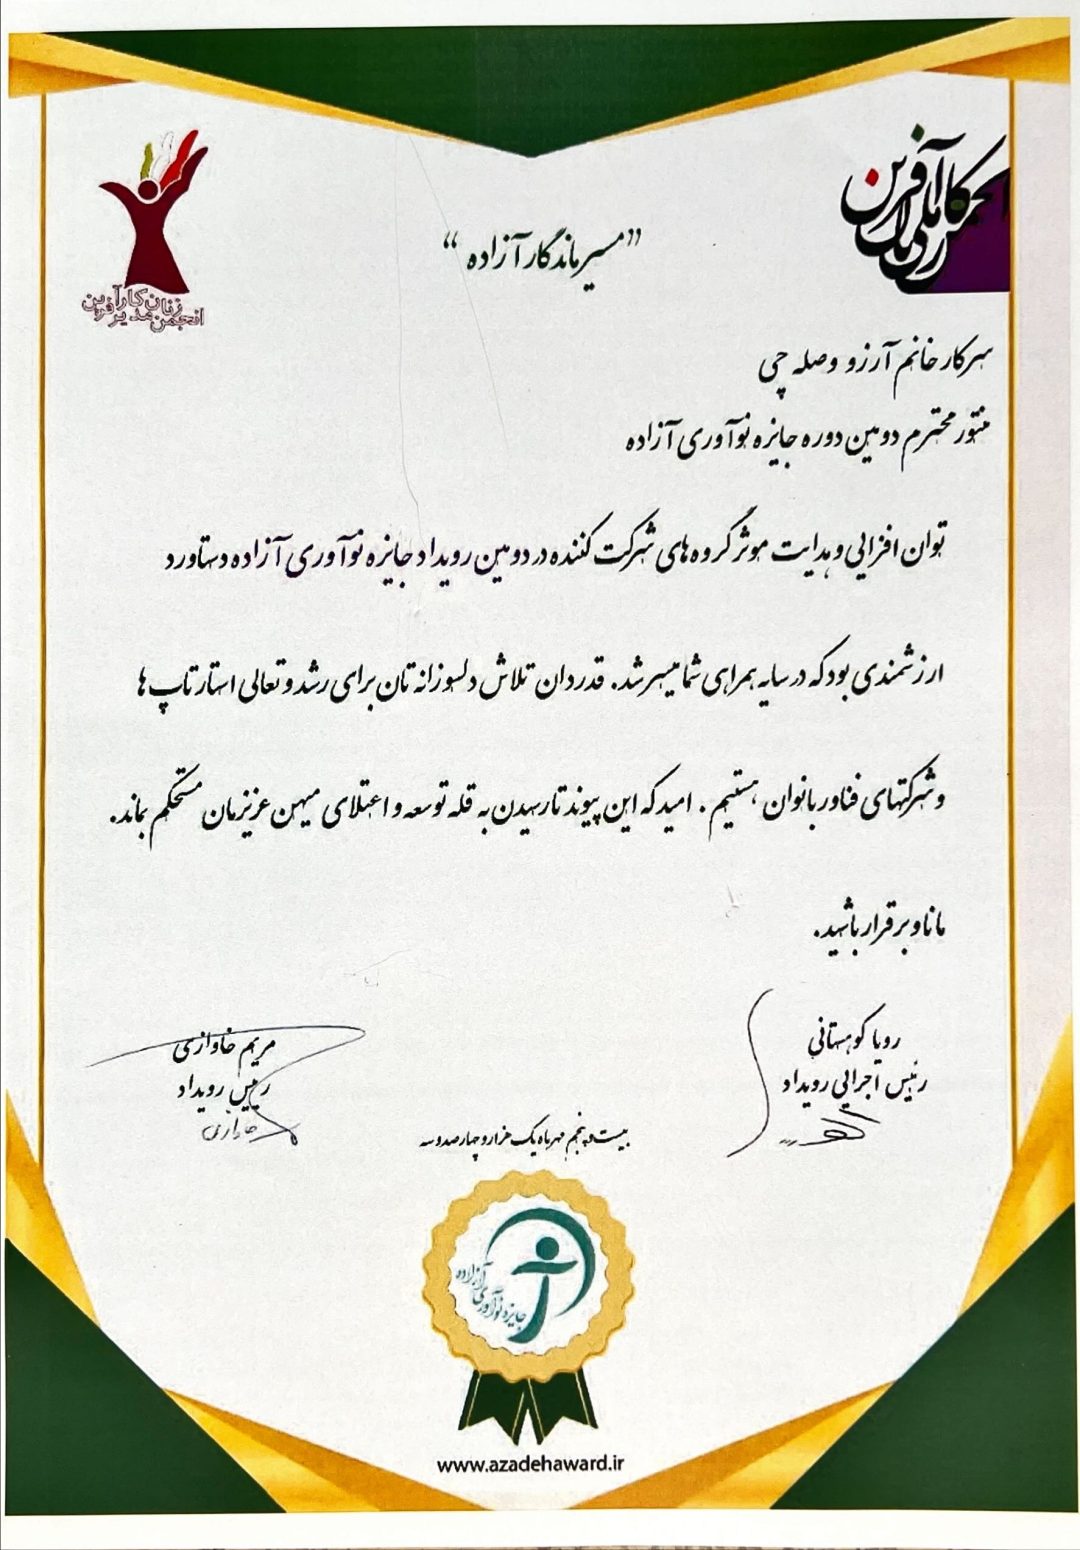 انجمن زنان مدیر کارآفرین
"مسیر ماندگار آزاده"
سرکار خانم آرزو وصله چی
منتور محترم دومین دوره جایزه نوآوری آزاده
توان افزایی و هدایت موثر گروه های شرکت کننده در دومین رویداد جایزه نوآوری آزاده دستاورد
ارزشمندی بود که در سایه همراهی شما میسر شد. قدردان تلاش دلسوزانه تان برای رشد و تعالی استارتاپ ها
و شرکتهای فناور بانوان هستیم. امید که این پیوند تا رسیدن به قله توسعه و اعتلای میهن عزیزمان مستحکم بماند.
مانا و برقرار باشید.
رویا کوهستانی
رئیس اجرایی رویداد
مریم خاوازی
رییس رویداد
بیست و پنجم مهرماه یک هزار و چهارصد و سه
جایزه نوآوری آزاده
www.azadehaward.ir